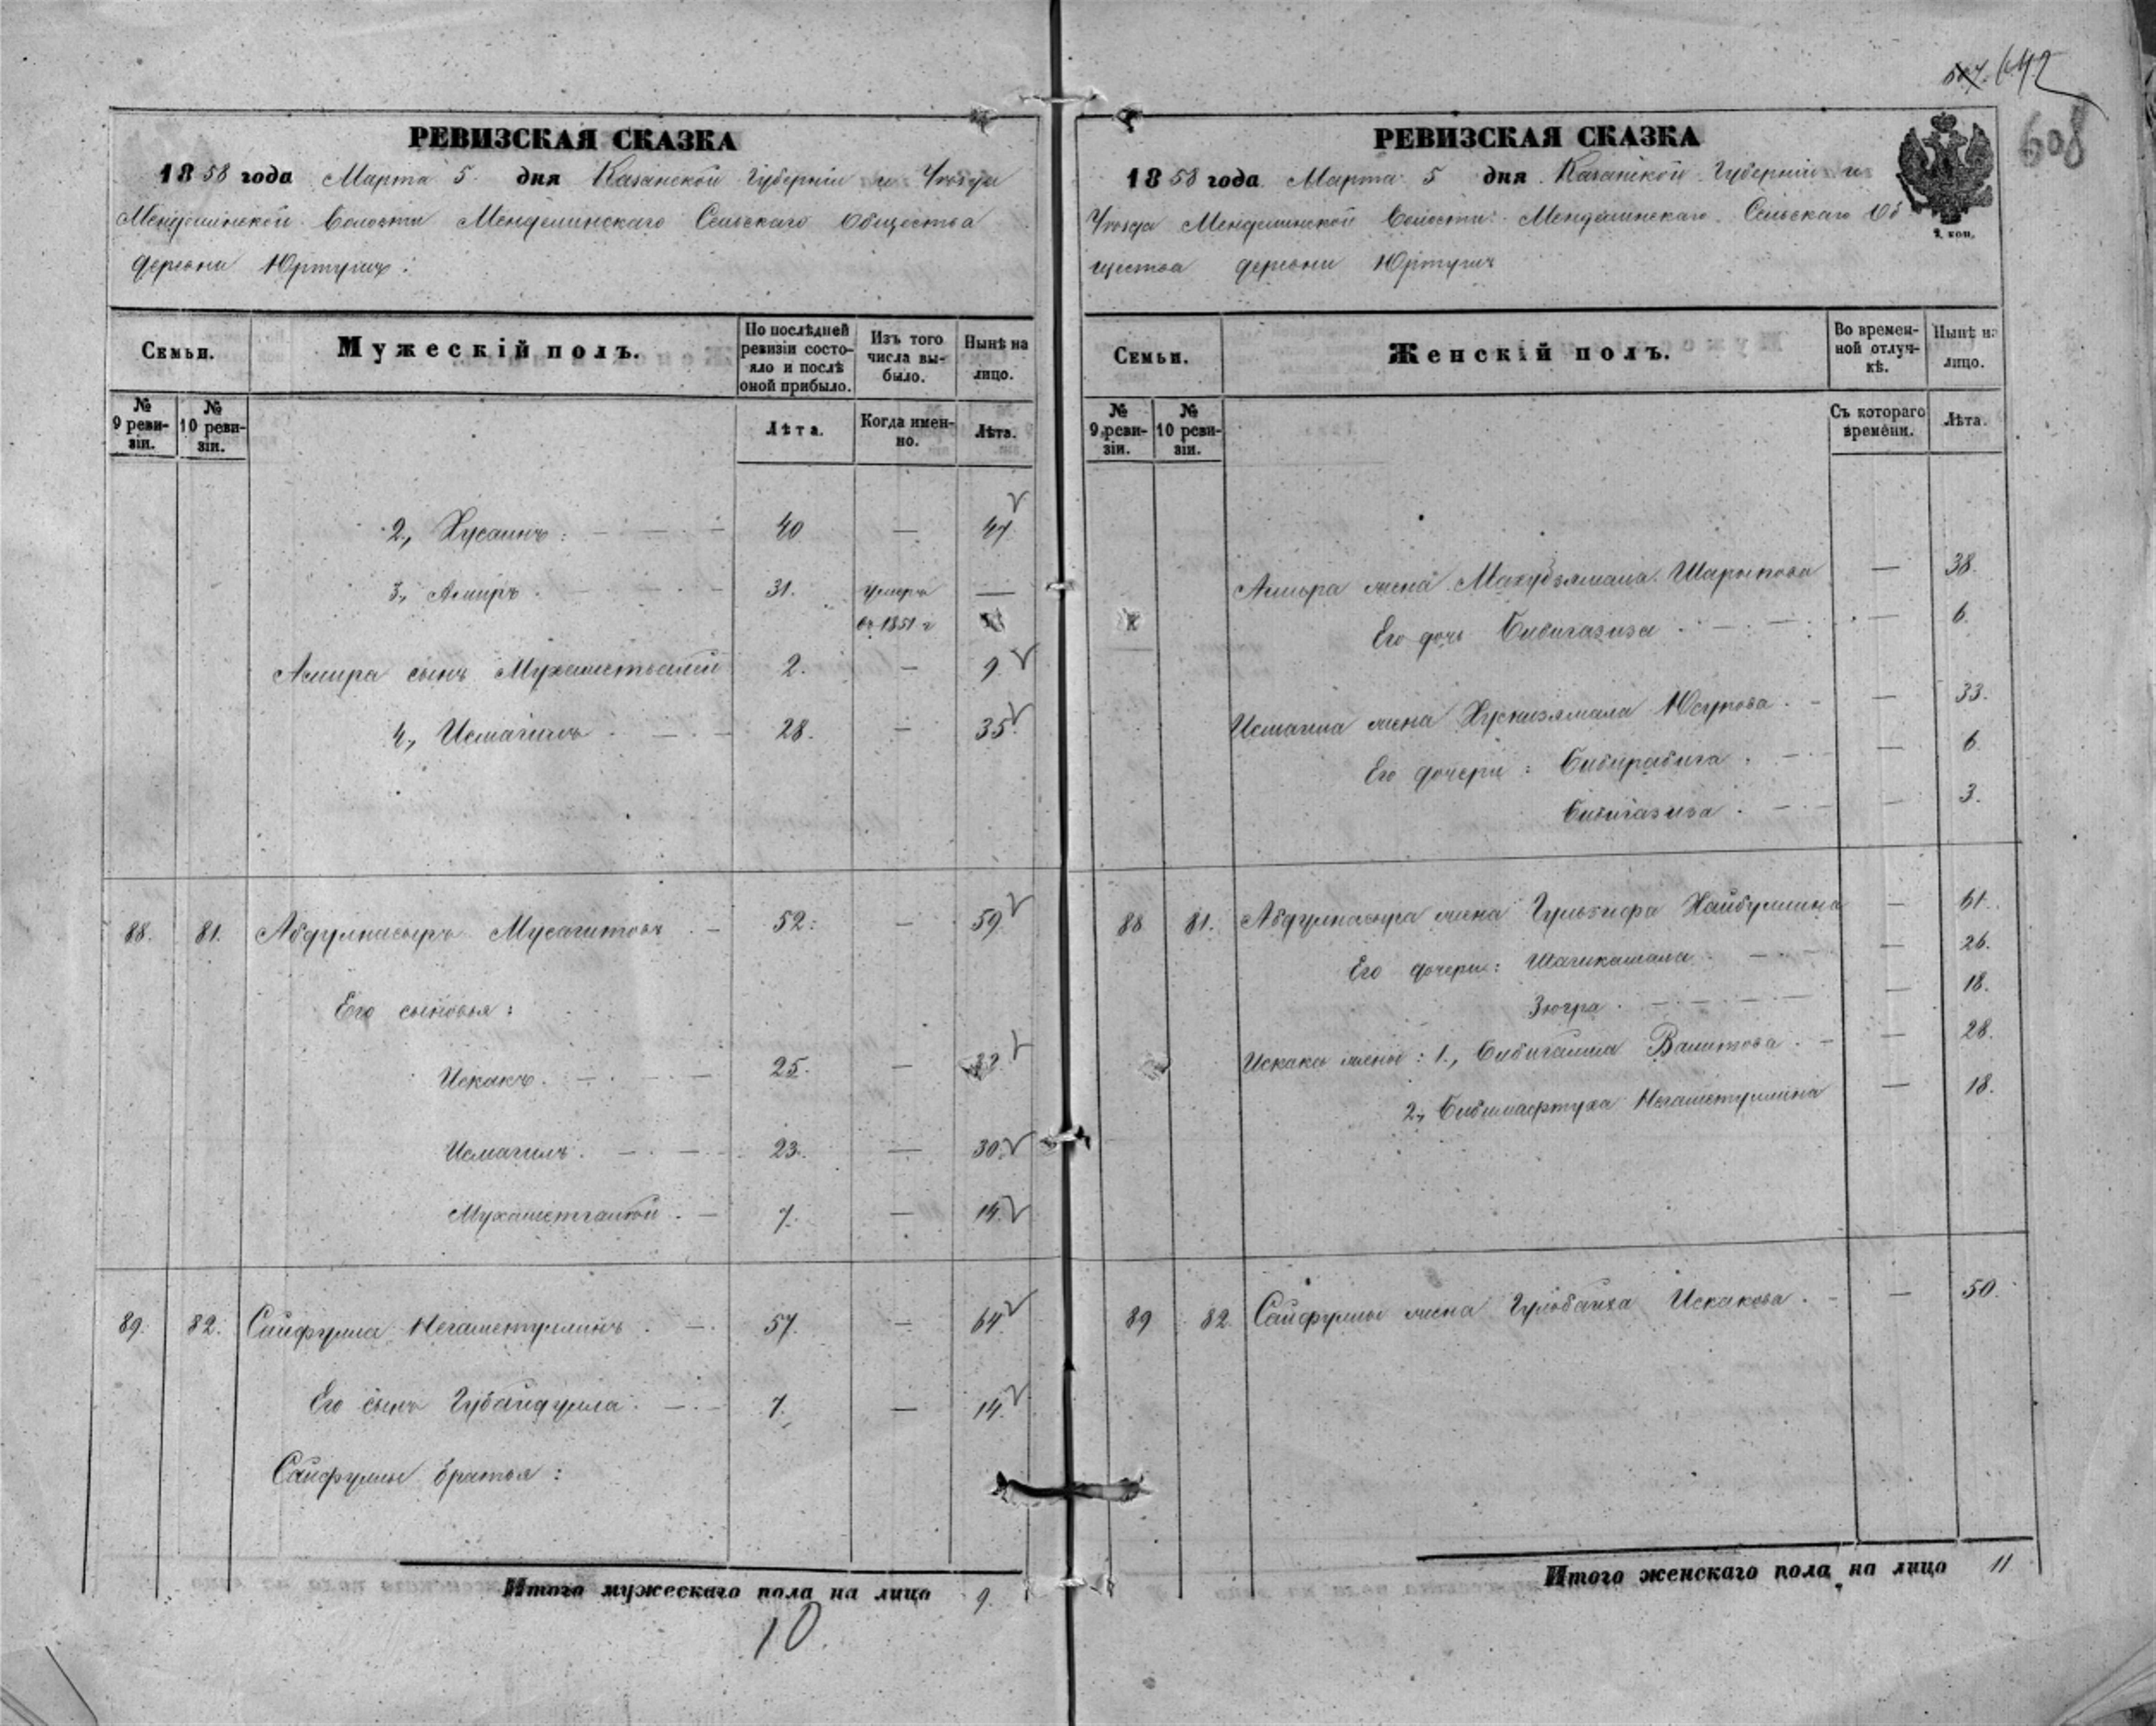 642
608
РЕВИЗСКАЯ СКАЗКА
1858 года Марта 5 дня Казанской Губерніи и Уѣзда
Менделинской Волости Менделинскаго Сельскаго Общества
деревни Юртушъ:
Семьи.
Мужескій полъ.
По послѣдней ревизіи состояло и послѣ оной прибыло.
Изъ того числа выбыло.
Нынѣ на лицо.
№ 9 ревизіи.
№ 10 ревизіи.
Лѣта.
Когда именно.
Лѣта.
2., Хусаинъ: 40 — 47
3., Амиръ. 31. умеръ —
въ 1851 г
Амира сынъ 2. — 9
4., Исмагилъ 28. — 35.
88. 81. Абдулнасыръ Мусагитовъ 52: — 59
Его сыновья:
Искакъ. 25. — 32
Исмагилъ. 23. — 30.
7. — 14.
89. 82. Сайфулла Негаметуллинъ 57. — 64
Его сынъ Губайдулла. 7. — 14.
Сайфуллы братья:
Итого мужескаго пола на лицо 9.
10.
РЕВИЗСКАЯ СКАЗКА
1858 года Марта 5 дня Казанской Губерніи и
Уѣзда Менделинской Волости Менделинскаго Сельскаго Об
щества деревни Юртушъ
2. коп.
Семьи.
Женскій полъ.
Во временной отлучкѣ.
Нынѣ на лицо.
№ 9 ревизіи.
№ 10 ревизіи.
Съ котораго времени.
Лѣта.
Амира жена Шарыпова — 38.
Его дочь Бибигазиза — 6.
Исмагила жена Юсупова — 33.
Его дочери: Бибирабига. — 6.
Бибигазиза — 3.
88 81. Абдулнасыра жена Хайбуллина — 61.
Его дочери: Шагикамала — 26.
Зюгра — 18.
Искака жены: 1., Валитова — 28.
2., Негаметуллина — 18.
89 82. Сайфуллы жена Гульбаиха Искакова. — 50.
Итого женскаго пола на лицо 11